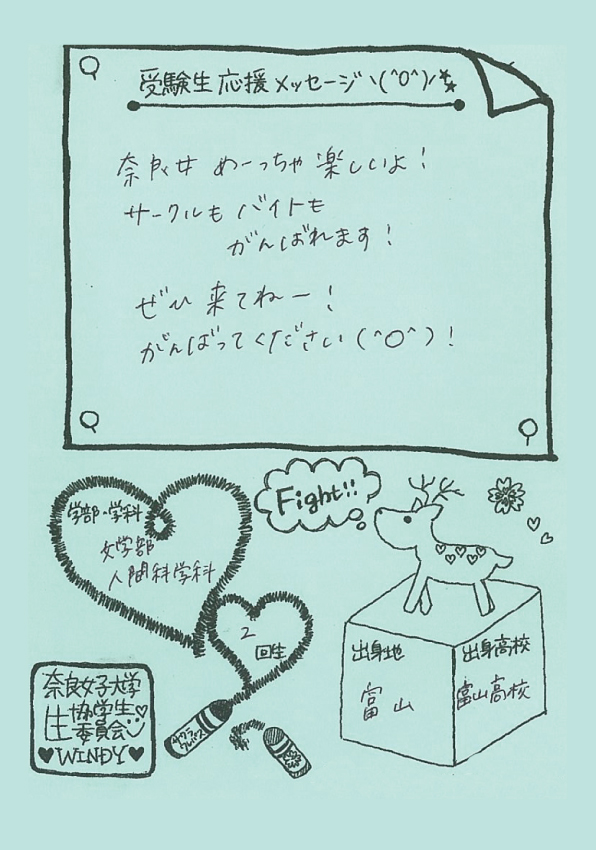 受験生応援メッセージヽ(^O^)ノ
奈良女 めーっちゃ楽しいよ！
サークルも バイトも
がんばれます！
ぜひ 来てねー！
がんばってください(^O^)！
Fight!!
学部・学科
文学部
人間科学科
2
回生
出身地
富山
出身高校
富山高校
奈良女子大学
生協学生
委員会
♥WINDY♥
サクラ
クレパス